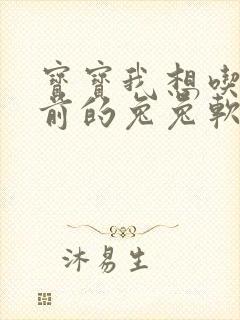 寶寶我想喫
前的兔兔軟
沐易生